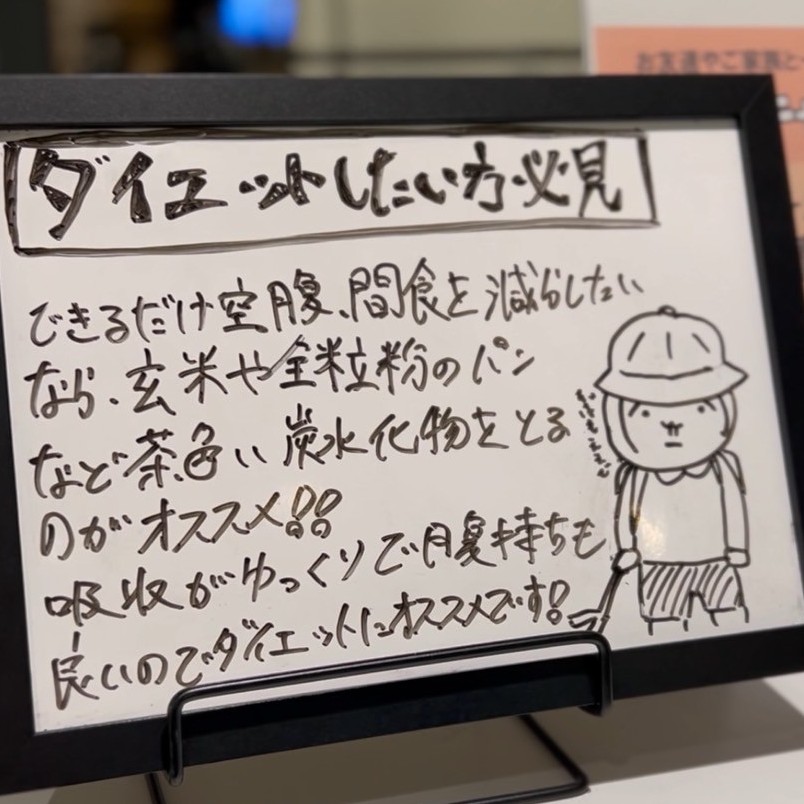 お友達やご家族と
ダイエットしたい方必見
できるだけ空腹、間食を減らしたい
なら、玄米や全粒粉のパン
など茶色い炭水化物をとる
のがオススメ!!
吸収がゆっくりで腹持ちも
良いのでダイエットにオススメです!